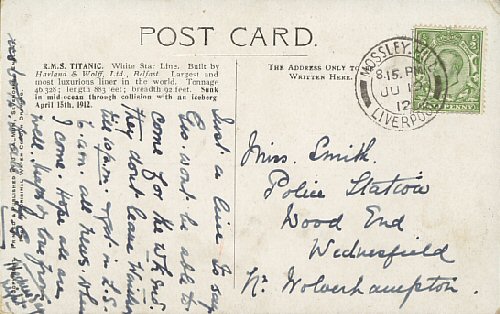 POST CARD.
R.M.S. TITANIC. White Star Line. Built by
Harland & Wolff, Ltd., Belfast. Largest and
most luxurious liner in the world. Tonnage
46,328; length 883 feet; breadth 92 feet. Sunk
in mid-ocean through collision with an iceberg
April 15th, 1912.
THE ADDRESS ONLY TO BE
WRITTEN HERE.
MOSSLEY HILL
8.15. PM
JU
12
LIVERPOOL
PENNY
Just a line to say
Gus won't be able to
come for the wk end.
they don't leave
till
6 a.m. all news when
I come. Hope all are
well.
Miss. Smith.
Police Station
Wood End
Wednesfield
Nr Wolverhampton.